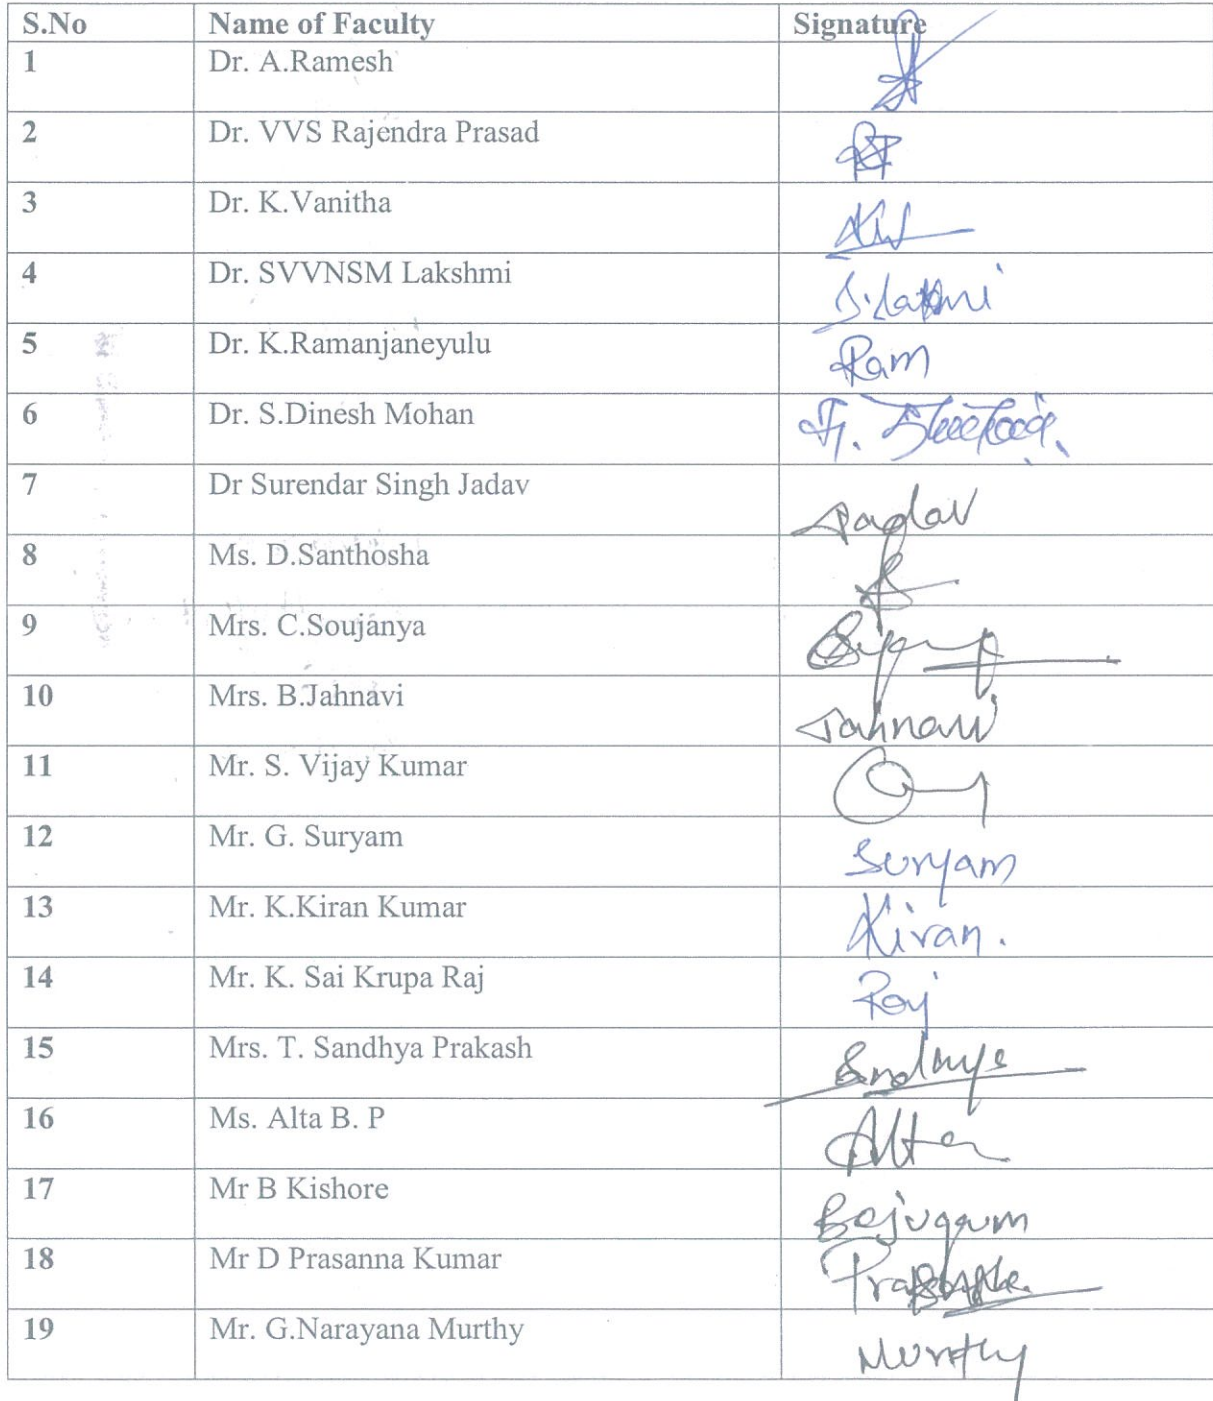 S.No Name of Faculty Signature
1 Dr. A.Ramesh
2 Dr. VVS Rajendra Prasad
3 Dr. K.Vanitha
4 Dr. SVVNSM Lakshmi S.Lakshmi
5 Dr. K.Ramanjaneyulu Ram
6 Dr. S.Dinesh Mohan
7 Dr Surendar Singh Jadav Jadav
8 Ms. D.Santhosha
9 Mrs. C.Soujanya
10 Mrs. B.Jahnavi Jahnavi
11 Mr. S. Vijay Kumar
12 Mr. G. Suryam Suryam
13 Mr. K.Kiran Kumar Kiran.
14 Mr. K. Sai Krupa Raj Raj
15 Mrs. T. Sandhya Prakash
16 Ms. Alta B. P Alta
17 Mr B Kishore Bejugum
18 Mr D Prasanna Kumar
19 Mr. G.Narayana Murthy Murthy